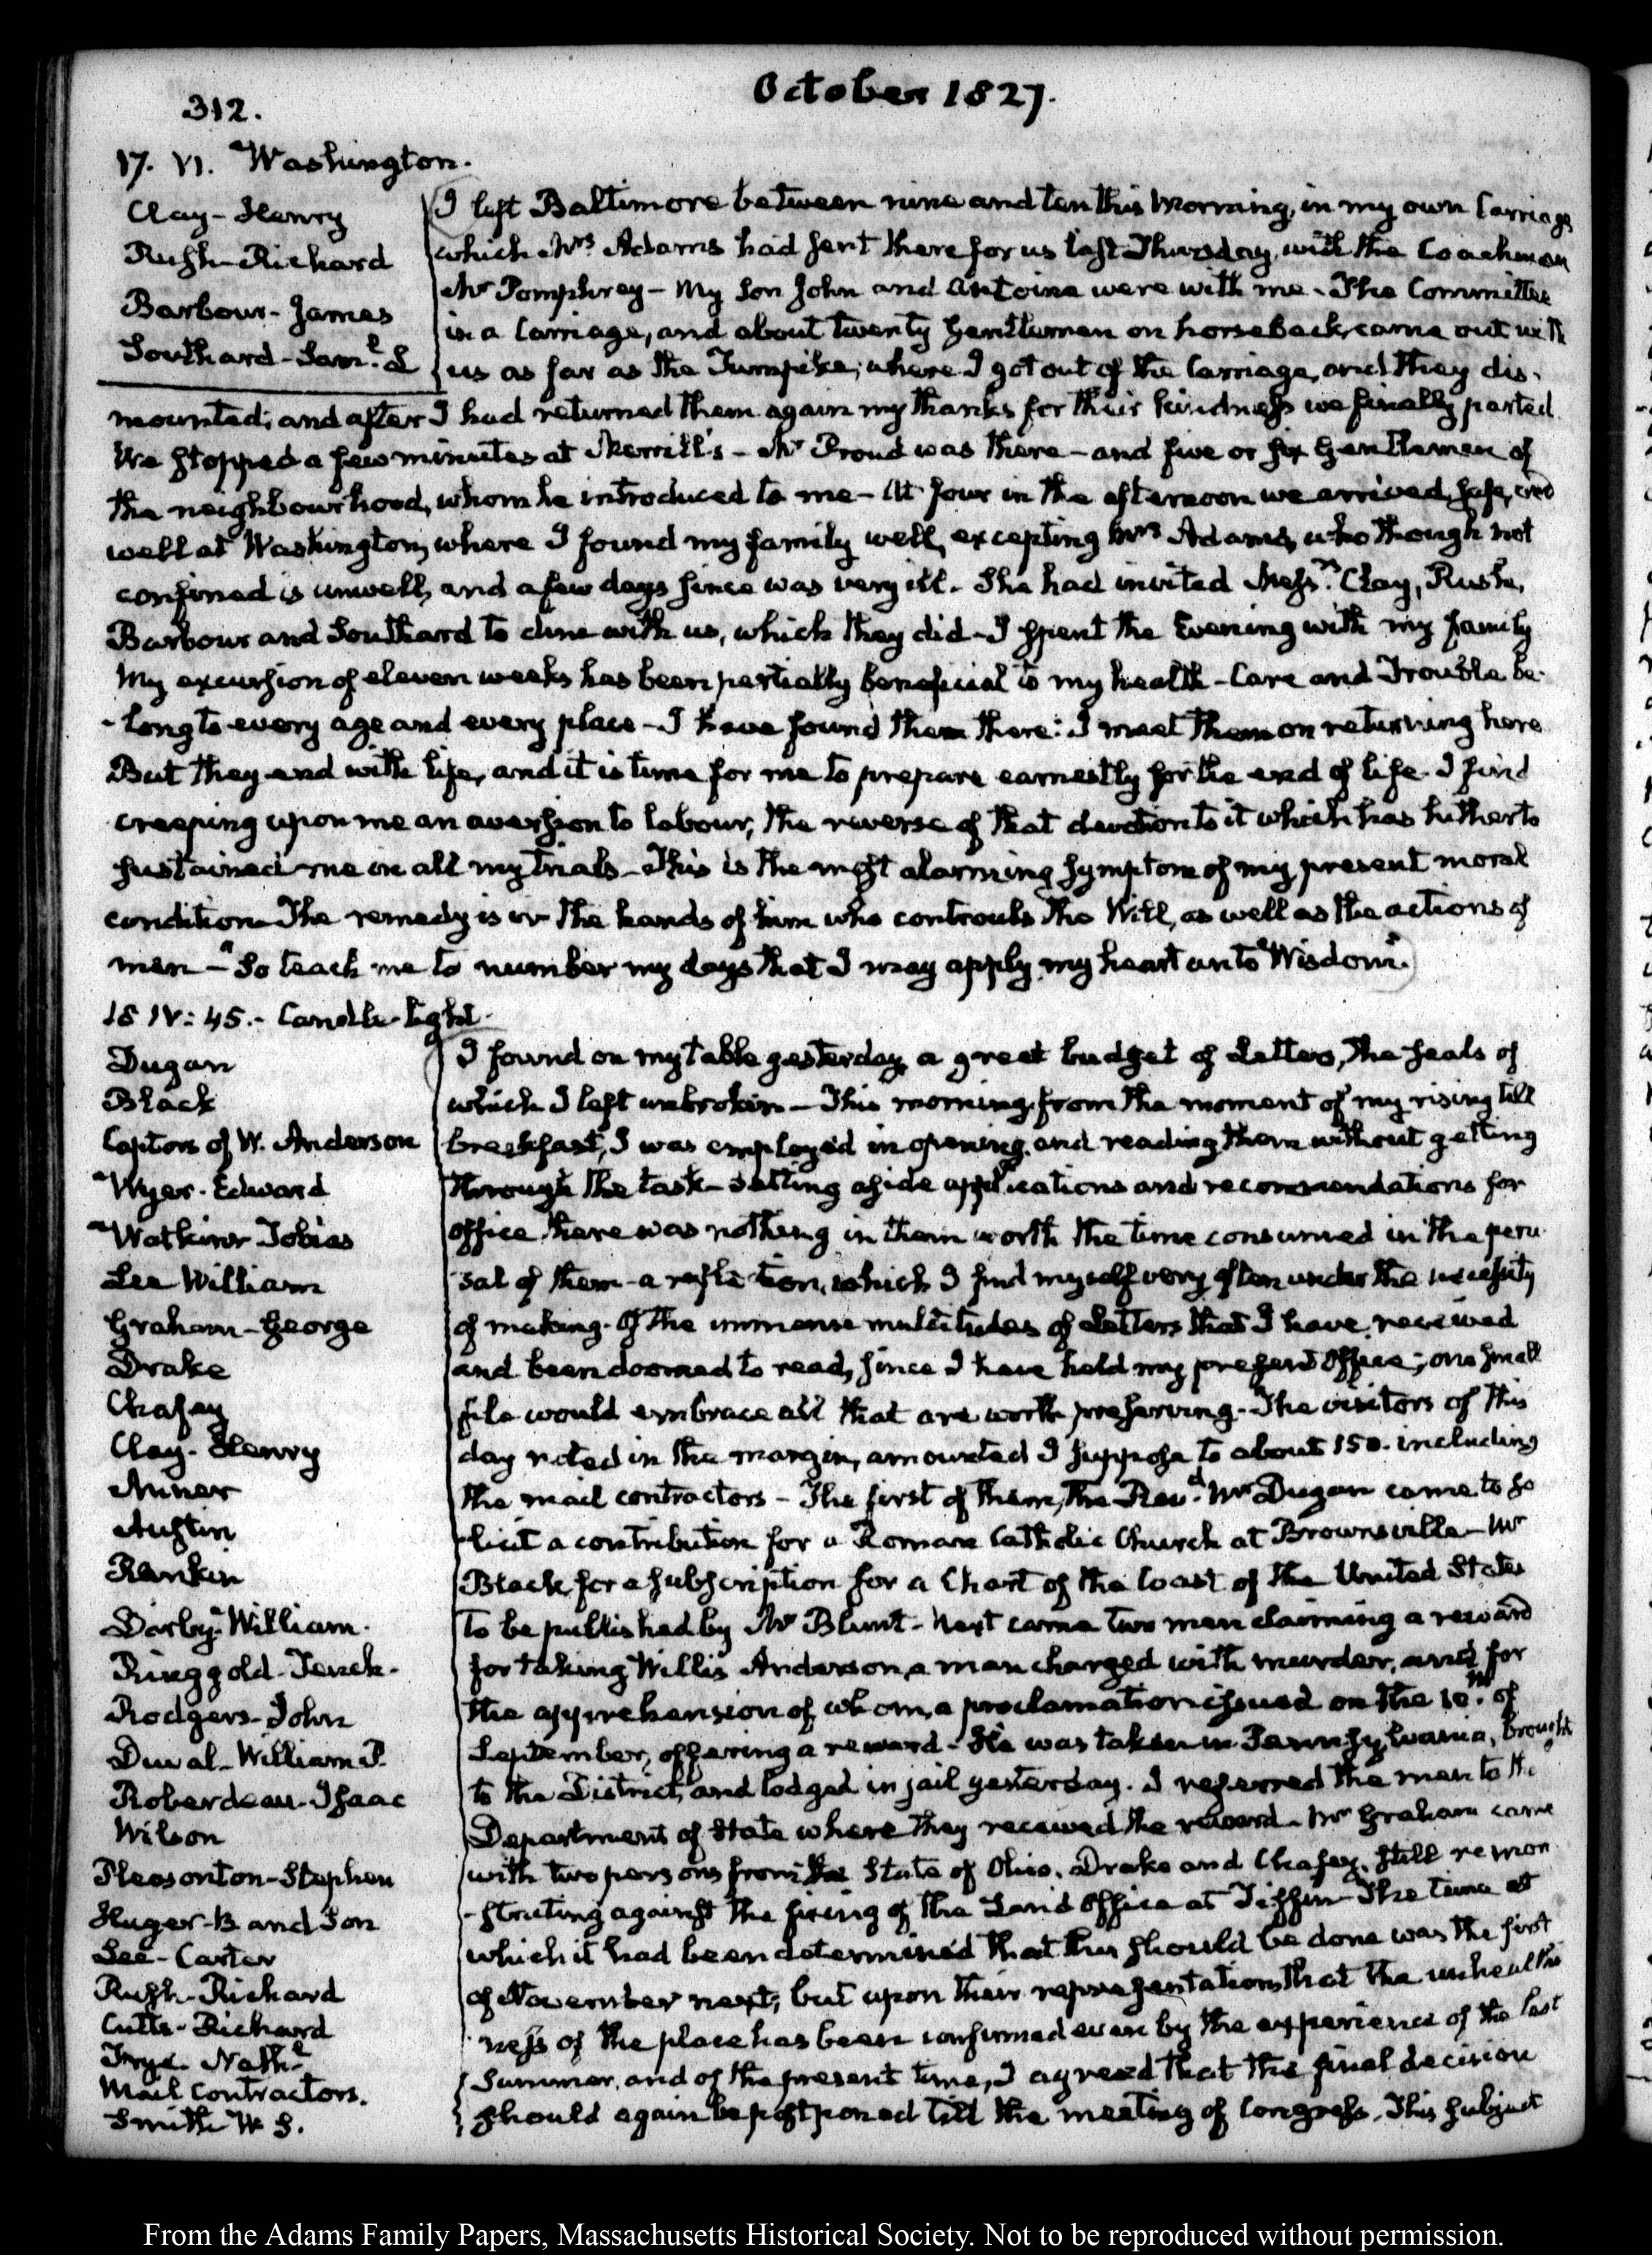 October 1827.
312.
17. VI. Washington.
Clay - Henry
Rush - Richard
Barbour - James
Southard - Saml. L
I left Baltimore between nine and ten this Morning, in my own Carriage
which Mrs Adams had sent there for us last Thursday, with the Coachman
Mr Pomphrey - My Son John and Antoine were with me - The Committee
in a Carriage, and about twenty Gentlemen on horseback, came out with
us as far as the Turnpike; where I got out of the Carriage, and they dis-
mounted; and after I had returned them again my thanks for their kindness we finally parted.
We stopped a few minutes at Merrill's - Mr Proud was there - and five or six Gentlemen of
the neighbourhood, whom he introduced to me - At four in the afternoon we arrived, safe, and
well at Washington, where I found my family well, excepting Mrs Adams, who though not
confined is unwell, and a few days since was very ill. She had invited Messrs. Clay, Rush,
Barbour and Southard to dine with us, which they did - I spent the Evening with my family
My excursion of eleven weeks has been partially beneficial to my health - Care and Trouble be-
-long to every age and every place - I have found them there: I meet them on returning here
But they end with life, and it is time for me to prepare earnestly for the end of life. I find
creeping upon me an aversion to labour, the reverse of that devotion to it which has hitherto
sustained me in all my trials - This is the most alarming symptom of my present moral
condition The remedy is in the hands of him who controuls the Will, as well as the actions of
men - "So teach me to number my days that I may apply my heart unto Wisdom".
18 IV: 45. - Candle-light.
Dugan
Black
Captors of W. Anderson
Wyer - Edward
Watkins Tobias
Lee William
Graham - George
Drake
Chafey
Clay - Henry
Anner
Austin
Rankin
Darby - William.
Ringgold - Tench.
Rodgers - John
Duval - William P.
Roberdeau - Isaac
Wilson
Pleasonton - Stephen
Huger - B and Son
Lee - Carter
Rush - Richard
Cutts - Richard
Frye Nathl
Mail Contractors.
Smith W S.
I found on my table yesterday, a great budget of Letters, the seals of
which I left unbroken - This morning, from the moment of my rising till
breakfast, I was employed in opening, and reading them without getting
through the task - Setting aside applications and recommendations for
office there was nothing in them worth the time consumed in the peru-
sal of them - a reflection, which I find myself very often under the necessity
of making - Of the immense multitudes of Letters that I have received
and been doomed to read, since I have held my present Office; one small
file would embrace all that are worth preserving - The visitors of this
day noted in the margin, amounted I suppose to about 150. including
the mail contractors - The first of them, the Revd. Mr Dugan came to so
-licit a contribution for a Roman Catholic Church at Brownsville - Mr
Black for a subscription for a Chart of the Coast of the United States
to be published by Mr Blunt - Next came two men claiming a reward
for taking Willis Anderson, a man charged with murder, and for
the apprehension of whom, a proclamation issued on the 10th. of
September, offering a reward - He was taken in Pennsylvania, brought
to the District, and lodged in jail yesterday. I referred the men to the
Department of State where they received the reward - Mr Graham came
with two persons from the State of Ohio, Drake and Chafey, still remon
-strating against the fixing of the Land Office at Tiffin - The time at
which it had been determined that this should be done was the first
of November next; but upon their representations that the unhealthi
ness of the place has been confirmed even by the experience of the last
Summer, and of the present time, I agreed that the final decision
should again be postponed till the meeting of Congress. This subject
From the Adams Family Papers, Massachusetts Historical Society. Not to be reproduced without permission.